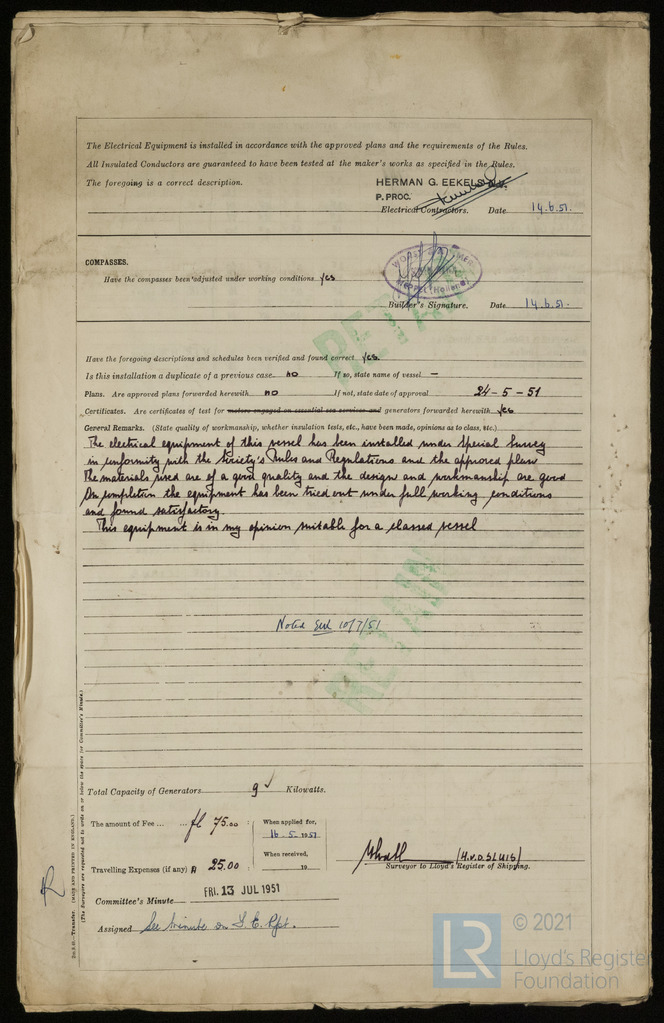 The Electrical Equipment is installed in accordance with the approved plans and the requirements of the Rules.
All Insulated Conductors are guaranteed to have been tested at the maker's works as specified in the Rules.
The foregoing is a correct description.
HERMAN G. EEKELS N.V.
P. PROC.
Electrical Contractors. Date 14.6.51.
COMPASSES.
Have the compasses been adjusted under working conditions yes
MEPPEL (Holland)
Builder's Signature. Date 14.6.51.
RETAIN
Have the foregoing descriptions and schedules been verified and found correct yes.
Is this installation a duplicate of a previous case no If so, state name of vessel —
Plans. Are approved plans forwarded herewith no If not, state date of approval 24-5-51
Certificates. Are certificates of test for motors engaged on essential sea services and generators forwarded herewith yes
General Remarks. (State quality of workmanship, whether insulation tests, etc., have been made, opinions as to class, etc.)
The electrical equipment of this vessel has been installed under Special Survey
in conformity with the Society's Rules and Regulations and the approved plan
The materials used are of a good quality and the design and workmanship are good
On completion the equipment has been tried out under full working conditions
and found satisfactory.
This equipment is in my opinion suitable for a classed vessel
Noted 10/7/51
RETAIN
Total Capacity of Generators 9 Kilowatts.
The amount of Fee ... fl 75.00
When applied for,
16.5.1951
When received,
19
Travelling Expenses (if any) 25.00
(H.V.D.SLUIS)
Surveyor to Lloyd's Register of Shipping.
FRI. 13 JUL 1951
Committee's Minute
Assigned See minute on F.E. Rpt.
2m.5.51.—Transfer. (MADE AND PRINTED IN ENGLAND.)
(The Surveyors are requested not to write on or below the space for Committee's Minute.)
R
LR
© 2021
Lloyd's Register
Foundation